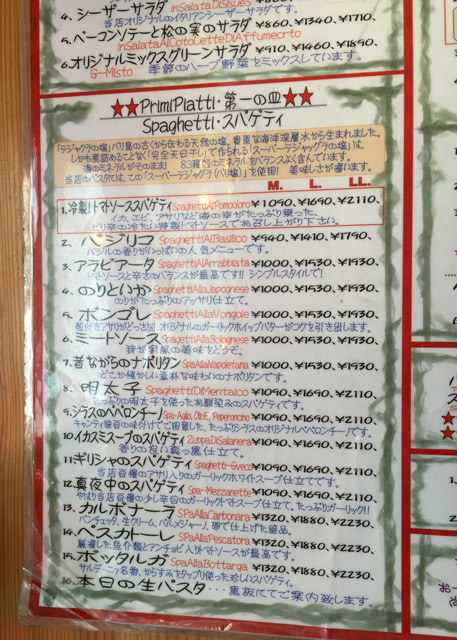 4. シーザーサラダ InSalataDiSisues ¥860, ¥1340, ¥1710.
当店オリジナルのイタリアンシーザーサラダです。
5. ベーコンソテーと松の実のサラダ
InSalataAlCotoLetteDiAffumecrto
6. オリジナルミックスグリーンサラダ ¥910, ¥1460, ¥1890.
G-Misto 季節のハーブ野菜をミックスしています。
★★PrimiPiatti・第一の皿★★
Spaghetti・スパゲティ
「テジャクラの塩」バリ島の古くから伝わる天然の塩。貴重な海洋深層水から生まれました。
しかも煮詰めることなく「完全天日干し」で作られる「スーパーテジャクラの塩」は、
海のミネラルがそのまま! 83種類のミネラルをバランスよく含んでいます。
当店のパスタでは、この「スーパーテジャクラ(バリ塩)」を使用! 美味しさが違います。
M. L. LL.
1. 冷製!トマトソーススパゲティ SpaghettiAlPomodoro ¥1090, ¥1690, ¥2110,
イカ、エビ、アサリなど海の幸がたっぷり乗った、
ピリ辛の冷たい特製トマトソースでお召し上がり下さい。
2. バジリコ SpaghettiAlBasilico ¥940, ¥1410, ¥1790.
バジルの香りがいっぱいの人気メニューです。
3. アラビアータ SpaghettiAlArrabbiata ¥1000, ¥1530, ¥1930.
トマトソースと辛さのバランスが最高です!! シンプルスタイルで!
4. のりといか SpaghettiAllaJaponese ¥1000, ¥1530, ¥1930.
のりがたっぷりのアッサリ仕立て。
5. ボンゴレ SpaghettiAllaVongole ¥1000, ¥1530, ¥1930.
殻付きアサリがどっさり!! オリジナルのガーリックホイップバターがコクを引き出します。
6. ミートソース SpagettiAlaBolognese ¥1000, ¥1530, ¥1930.
我が家風の美味をどうぞ。
7. 昔ながらのナポリタン SpaAllaNapoletana ¥1000, ¥1530, ¥1930.
どこか懐かしい素朴な味わいのナポリタン!
8. 明太子 SpaghettiDiMentaico ¥1090, ¥1690, ¥2110.
たっぷりの明太子を使ったお馴染みのスパゲティです。
9. シラスのペペロンチーノ Spa-Aglio, OlioE, Peperoncino ¥1090, ¥1690, ¥2110.
キャンティ独自の味付けでご用意した、たっぷりシラスのオリジナルペペロンチーノです。
10. イカスミスープのスパゲティ ZuppaDiSalanera ¥1090, ¥1690, ¥2110.
香りの良い真っ黒仕立て。
11. ギリシャのスパゲティ Spaghetti-Greco ¥1090, ¥1690, ¥2110.
当店自慢のアサリ入りのガーリックホワイトスープ仕立てです。
12. 真夜中のスパゲティ Spa-Mezzanette ¥1090, ¥1690, ¥2110.
やはり当店自慢の少し辛目のガーリックトマトスープ仕立て。たっぷりガーリック!!
13. カルボナーラ SpaAllaCarbonara ¥1320, ¥1880, ¥2230.
パンチェッタ、生クリーム、パルメジャーノ、卵で仕上げた絶品。
14. ペスカトーレ SpaAllaPescatora ¥1320, ¥1880, ¥2230.
厳選した魚介類とアンチョビ入りトマトソースが最高です。
15. ボッタルガ SpaAllaBottarga ¥1320, ¥1880, ¥2230.
サルデーニャ名物、からすみをタップリ使った珍しいスパゲティ。
16. 本日の生パスタ・・・黒板にてご案内致します。